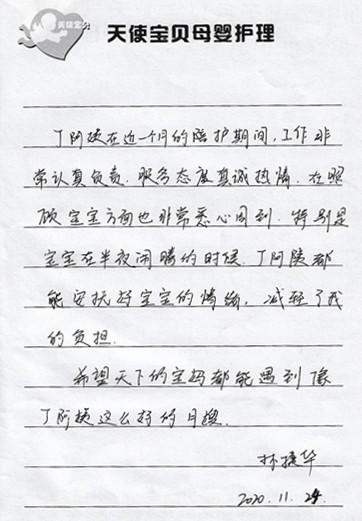 天使宝贝
天使宝贝母婴护理
丁阿姨在近一个月的陪护期间,工作非
常认真负责.服务态度真诚热情.在照
顾宝宝方面也非常悉心周到.特别是
宝宝在半夜闹腾的时候.丁阿姨都
能安抚好宝宝的情绪,减轻了我
的负担.
希望天下的宝妈都能遇到像
丁阿姨这么好的月嫂.
林捷华
2020.11.24